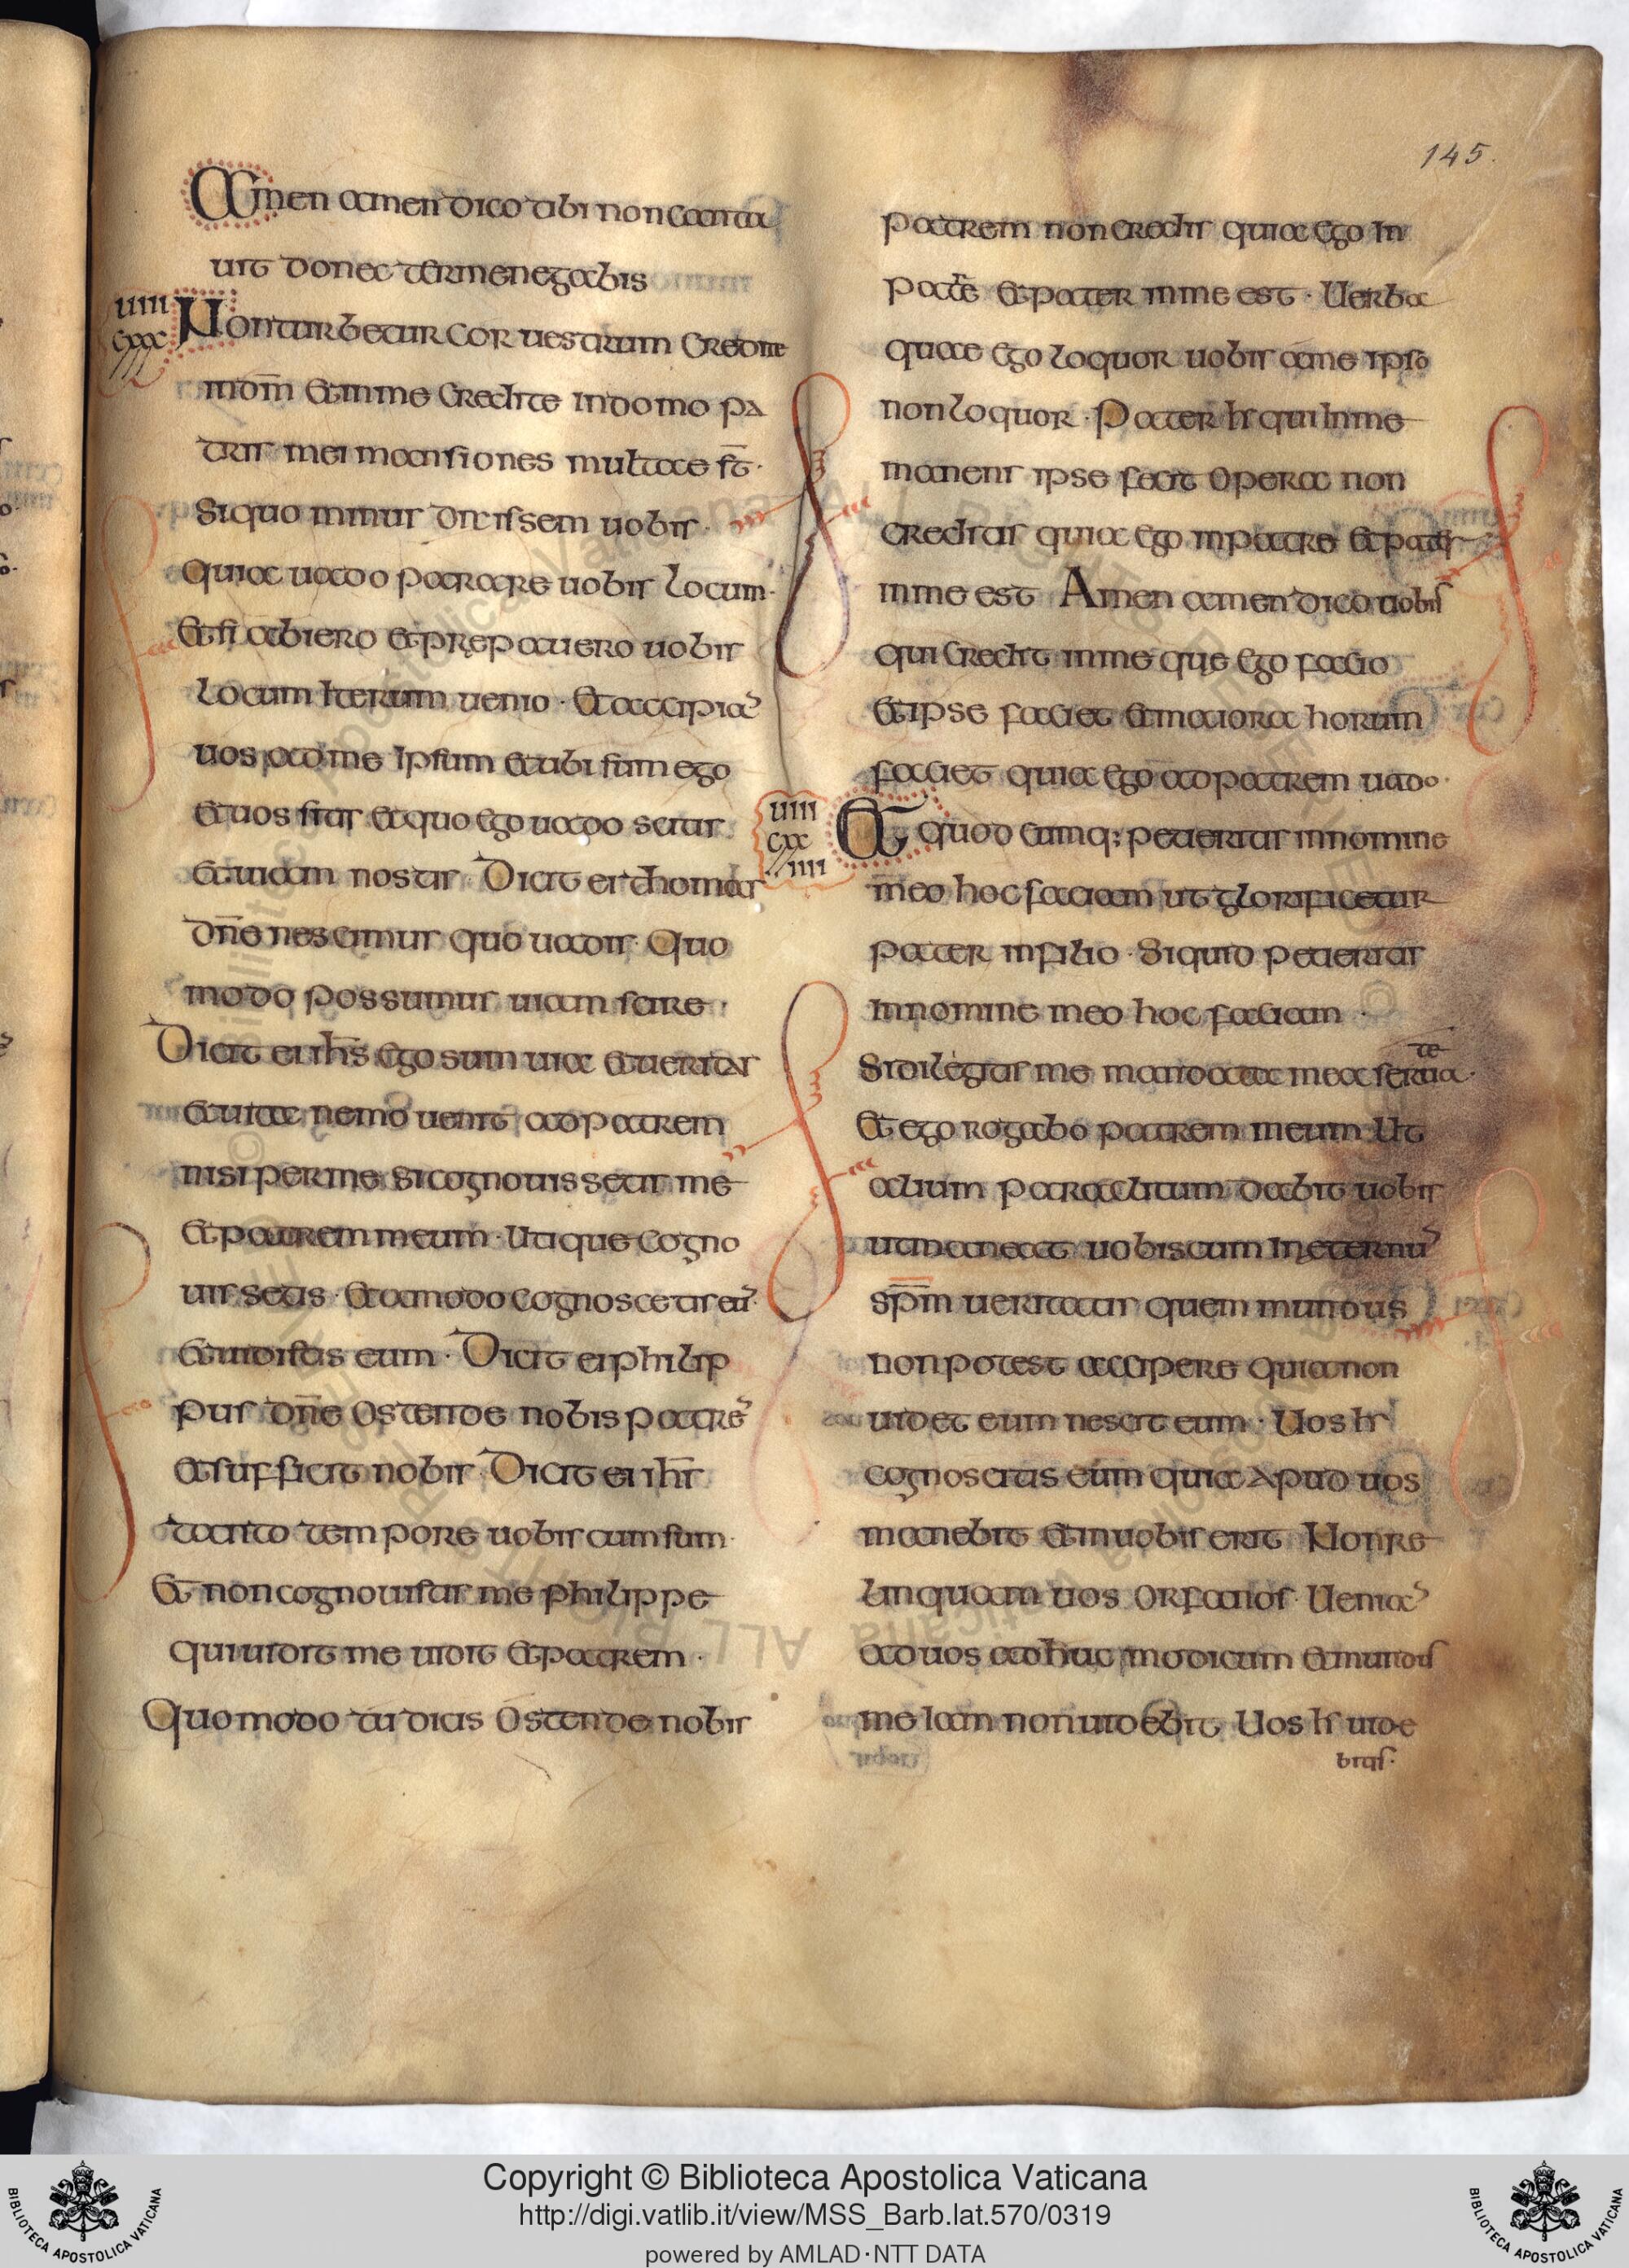 145.
Amen amen dico tibi non canta
uit donec ter me negabis
uiiii
cxxx
///
Non turbetur cor uestrum Credite
in dm̄ et in me Credite in domo pa
tris mei mansiones multae st̄·
Si quo minus dixissem uobis·
quia uado parare uobis locum·
Et si abiero et pręparauero uobis
locum iterum uenio · Et accipia
uos ad me ipsum et ubi sum ego
et uos sitis et quo ego uado scitis
et uiam nostis Dicit ei thomas
dn̄e nescimus quo uadis· Quo
modo possumus uiam scire ·
Dicit ei ihs̄ ego sum uia et ueritas
et uita nemo uenit ad patrem
nisi per me si cognouissetis me
et patrem meum · Utique cogno
uissetis · Et amodo cognoscetis eū·
Et uidistis eum · Dicit ei philip
pus dn̄e ostende nobis patrē
et sufficit nobis Dicit ei ihs̄
tanto tempore uobiscum sum·
Et non cognouistis me philippe
qui uidit me uidit et patrem ·
Quomodo tu dicis ostende nobis
patrem non credis quia ego in
patrē et pater in me est · Uerba
quae ego loquor uobis a me ipso
non loquor · Pater hs qui in me
manens ipse fecit opera non
creditis quia ego in patre et pater
in me est Amen amen dico uobis
qui credit in me quę ego facio
et ipse faciet et maiora horum
faciet quia ego ad patrem uado·
uiiii
cxx
//iiii
Et quod cumq; petieritis in nomine
meo hoc faciam ut glorificetur
pater in filio · Si quid petieritis
in nomine meo hoc faciam ·
Si diligitis me mandata mea serua
te
Et ego rogabo patrem meum Ut
alium paraclitum dabit uobis
ut maneat uobiscum in eternū
sp̄m ueritatis quem mundus
non potest accipere quia non
uidet eum nescit eum · Uos hs
cognoscitis eum quia apud uos
manebit et in uobis erit Non re
linquam uos orfanos · Ueniā
ad uos adhuc modicum et mundus
me iam non uidebit Uos hs uide
bitis·
Copyright © Biblioteca Apostolica Vaticana
http://digi.vatlib.it/view/MSS_Barb.lat.570/0319
powered by AMLAD·NTT DATA
BIBLIOTECA APOSTOLICA VATICANA
BIBLIOTECA APOSTOLICA VATICANA